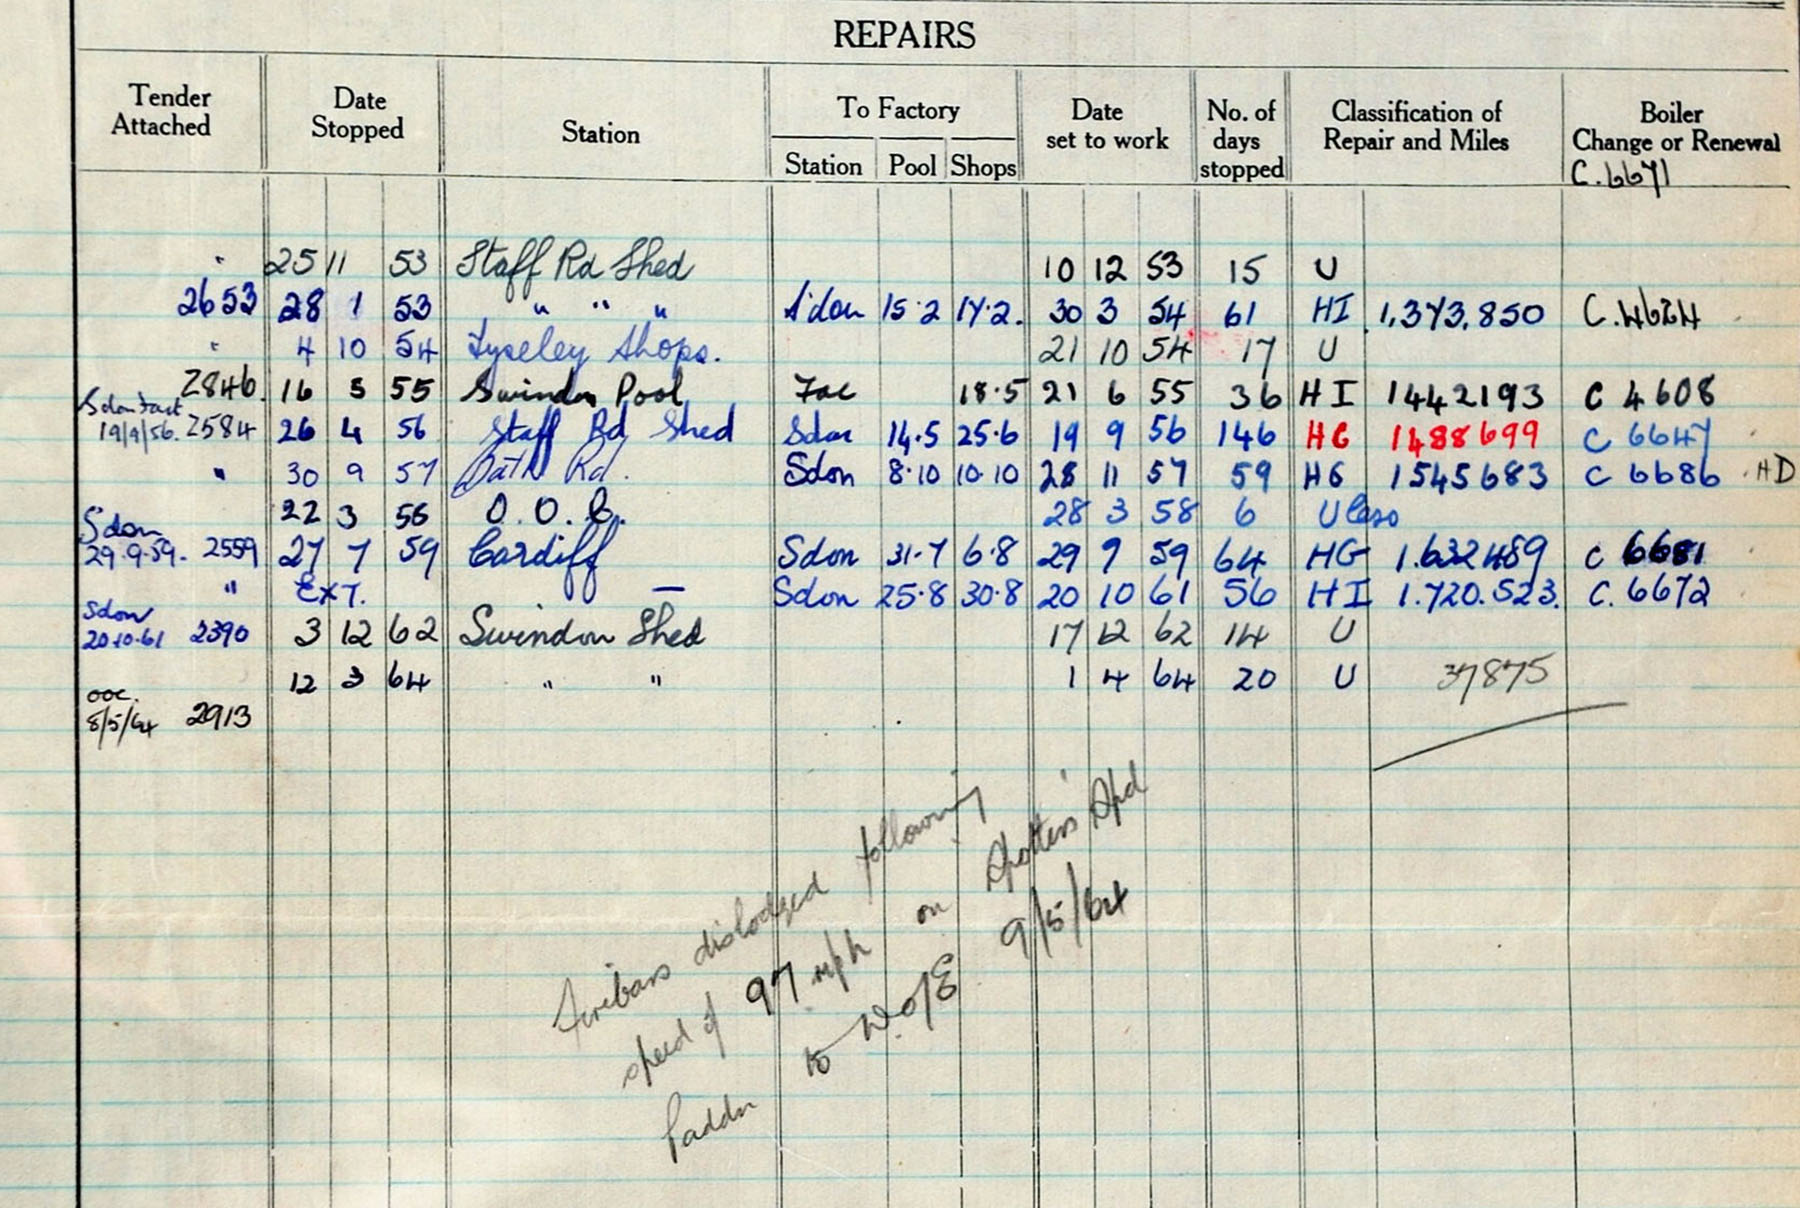 REPAIRS
Tender Attached | Date Stopped | Station | To Factory | Date set to work | No. of days stopped | Classification of Repair and Miles | Boiler Change or Renewal
Station | Pool | Shops
C.6671
" 25 11 53 Staff Rd Shed 10 12 53 15 U
2653 28 1 53 " " " S'don 15·2 17·2. 30 3 54 61 HI 1,373,850 C.4624
" 4 10 54 Tyseley Shops. 21 10 54 17 U
2846. 16 5 55 Swindon Pool Fac 18·5 21 6 55 36 HI 1442193 C 4608
Sdon Fact
19/9/56. 2584 26 4 56 Staff Rd Shed Sdon 14·5 25·6 19 9 56 146 HG 1488699 C 6647
" 30 9 57 Bath Rd. Sdon 8·10 10·10 28 11 57 59 HG 1545683 C 6686 HD
22 3 58 O.O.C. 28 3 58 6 U Cass
Sdon
29·9·59. 2559 27 7 59 Cardiff Sdon 31·7 6·8 29 9 59 64 HG 1.632489 C 6681
" EXT. — Sdon 25·8 30·8 20 10 61 56 HI 1.720.523. C. 6672
Sdon
20·10·61 2390 3 12 62 Swindon Shed 17 12 62 14 U
12 3 64 " " 1 4 64 20 U 37875
ooc.
8/5/64 2913
Firebars dislodged following
speed of 97 mph on Spotters Spl
Paddn to W of E 9/5/64